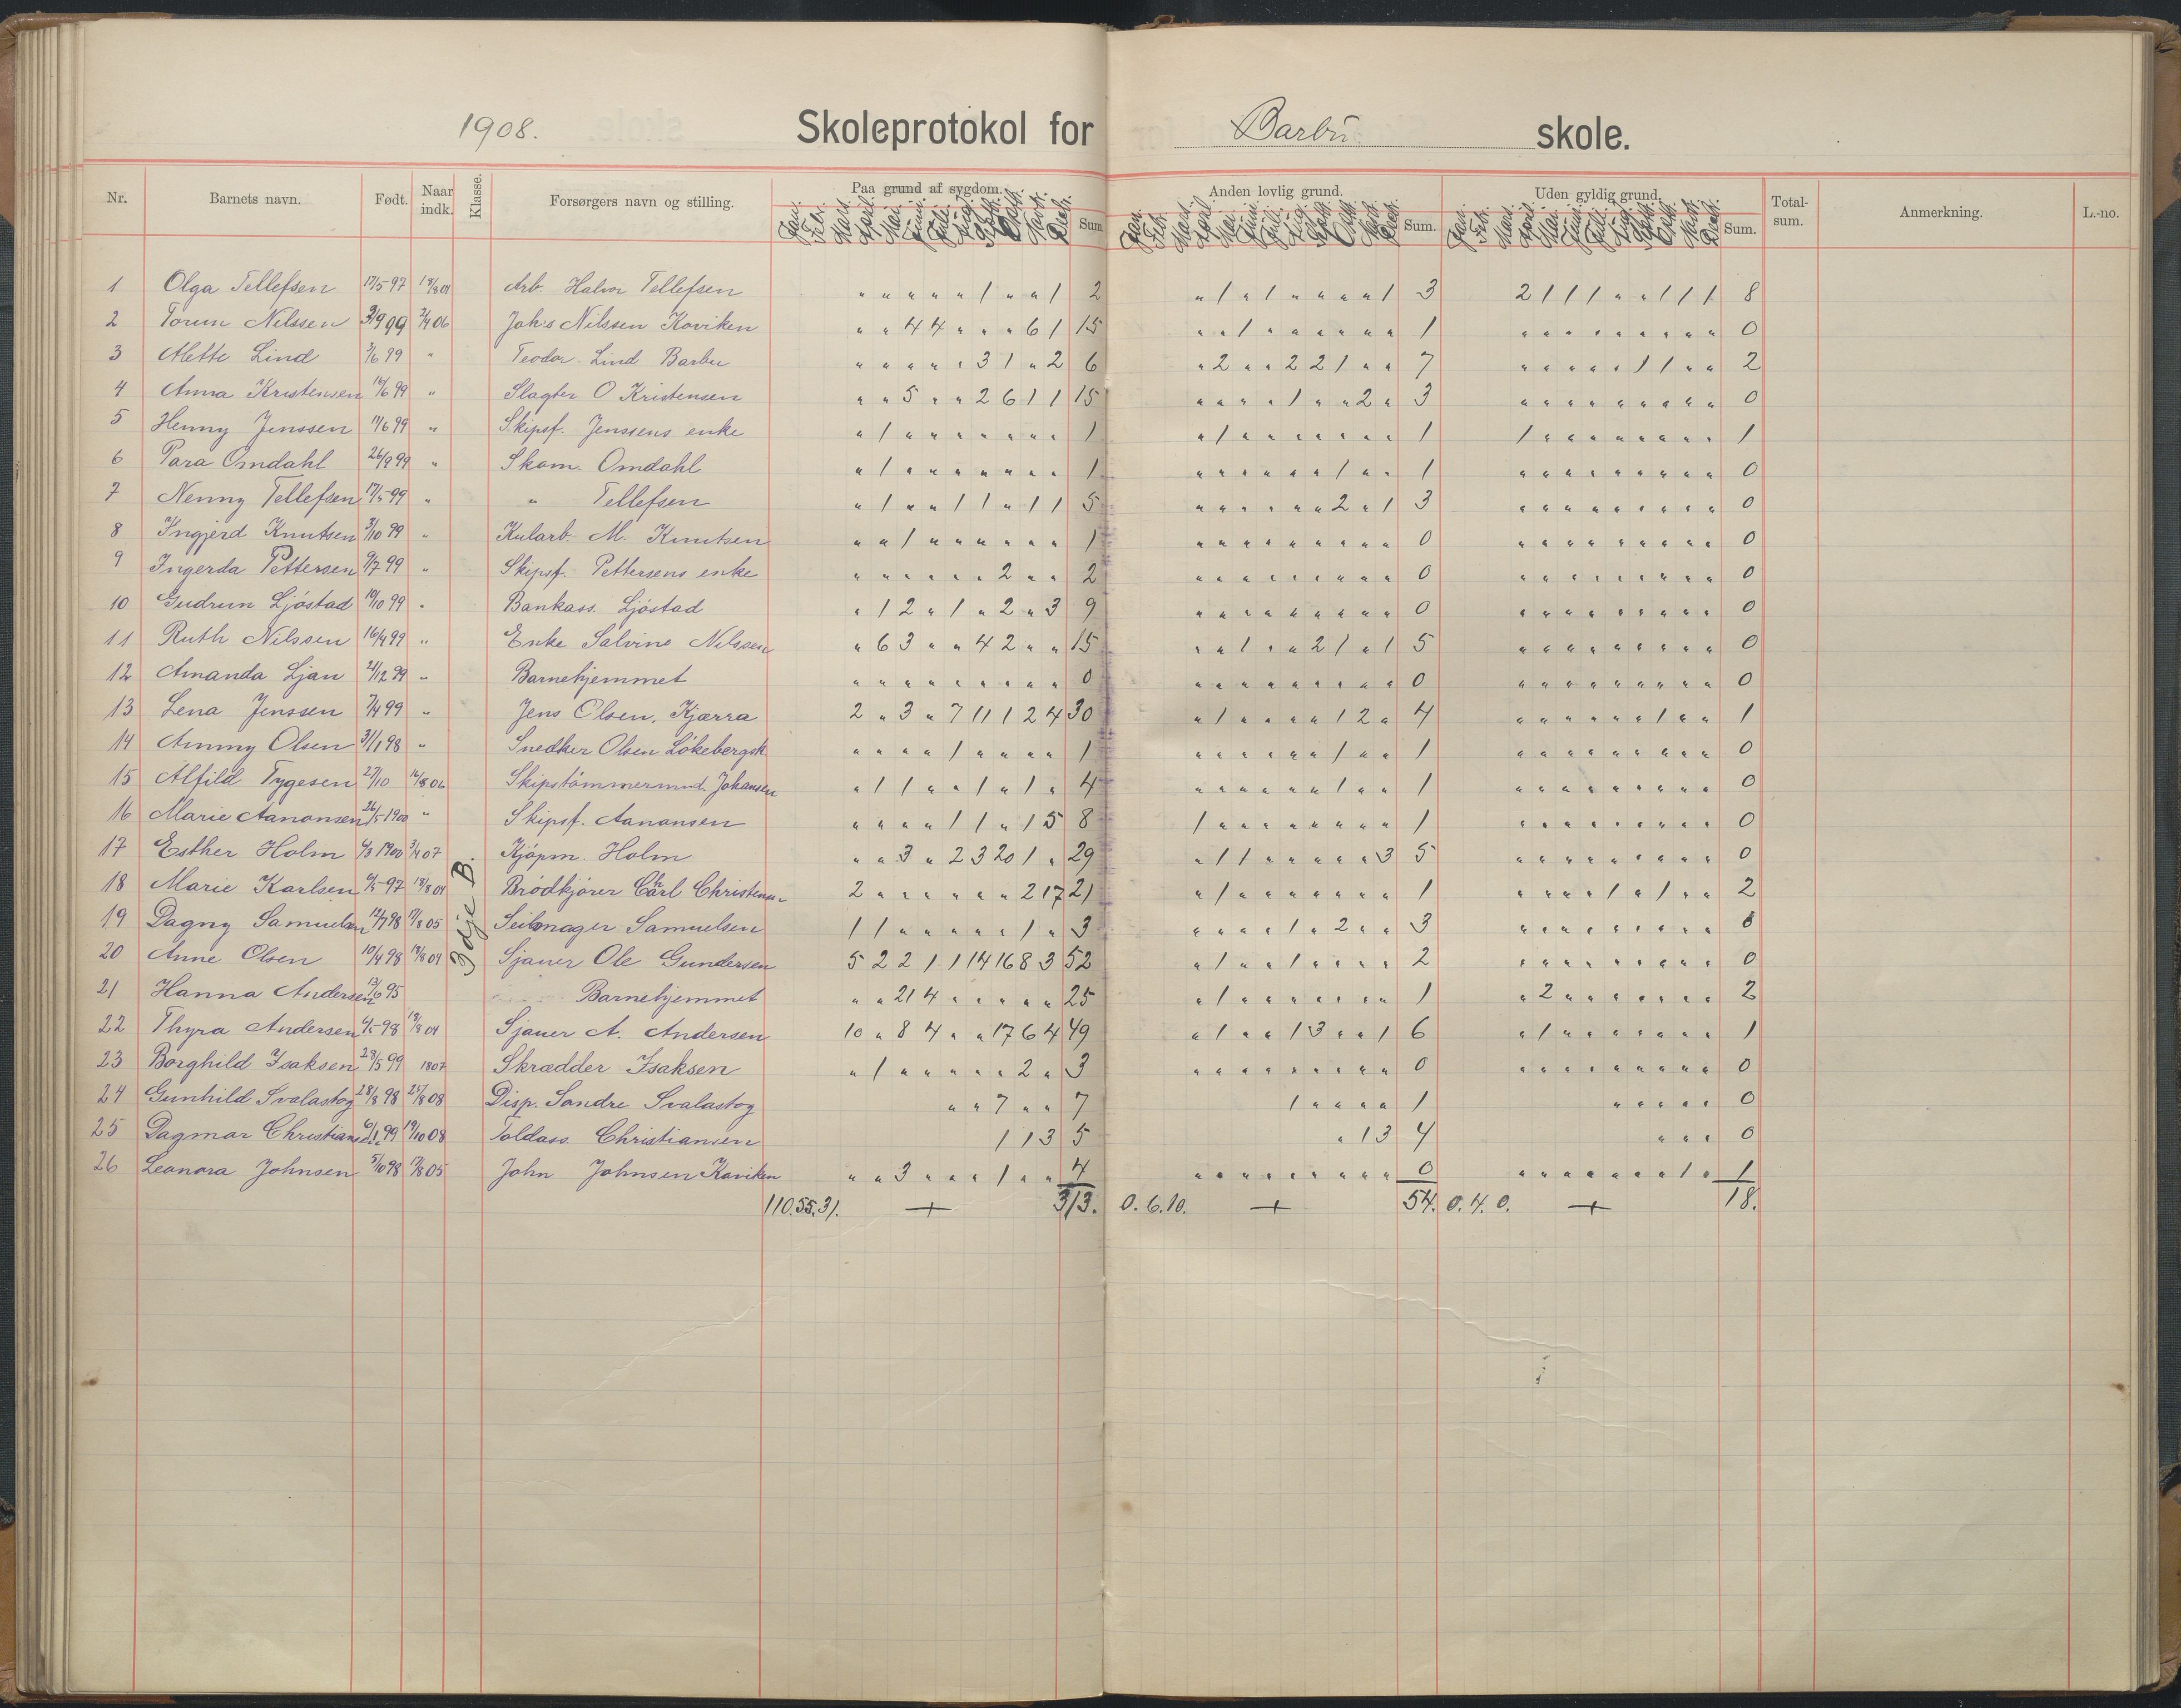 1908. Skoleprotokol for Barbu skole.
Nr. Barnets navn. Født. Naar indk. Klasse. Forsørgers navn og stilling. Paa grund af sygdom. Sum Anden lovlig grund. Sum. Uden gyldig grund. Sum. Total-sum. Anmerkning. L.-no.
1 Olga Tellefsen 17/5 97 Arb. Halvor Tellefsen " " " " " 1 " " 1 2 " 1 " 1 " " " " 1 3 2 1 1 1 " " 1 1 1 8
2 Torun Nilssen 3/9 99 2/4 06 Johs Nilssen Koviken " " 4 4 " " " 6 1 15 " " 1 " " " " " " 1 " " " " " " " " " 0
3 Mette Lind 3/6 99 " Teodor Lind Barbu " " " " " 3 1 " 2 6 " 2 " " 2 2 1 " " 7 " " " " " 1 1 " " 2
4 Anna Kristensen 16/6 99 " Slagter O Kristensen " " 5 " " 2 6 1 1 15 " " " " 1 " " 2 " 3 " " " " " " " " " 0
5 Henny Jenssen 11/6 99 " Skipsf. Jenssens enke " 1 " " " " " " " 1 " 1 " " " " " " " 1 1 " " " " " " " " 1
6 Omdahl 26/9 99 " Skom. Omdahl " 1 " " " " " " " 1 " " " " " " 1 " " 1 " " " " " " " " " 0
7 Nenny Tellefsen 17/5 99 " " Tellefsen " 1 " " 1 1 " 1 1 5 " " " " " " 2 " 1 3 " " " " " " " " " 0
8 Ingjerd Knutsen 3/10 99 " Kularb. M. Knutsen " " 1 " " " " " " 1 " " " " " " " " " 0 " " " " " " " " " 0
9 Ingerda Pettersen 9/7 99 " Skipsf. Pettersens enke " " " " " " 2 " " 2 " " " " " " " " " 0 " " " " " " " " " 0
10 Gudrun Ljöstad 10/10 99 " Bankass. Ljöstad " 1 2 " 1 " 2 " 3 9 " " " " " " " " " 0 " " " " " " " " " 0
11 Ruth Nilssen 16/4 99 " Enke Salvine Nilssen " 6 3 " " 4 2 " " 15 " " 1 " " 2 1 " 1 5 " " " " " " " " " 0
12 Amanda Ljan 21/12 99 " Barnehjemmet " " " " " " " " " 0 " " " " " " " " " 0 " " " " " " " " " 0
13 Lena Jenssen 7/4 99 " Jens Olsen, Kjærra 2 " 3 " 7 11 1 2 4 30 " 1 " " " " 1 2 " 4 " " " " " " 1 " " 1
14 Ammy Olsen 31/1 98 " Snedker Olsen Lökebergsk " " " " 1 " " " " 1 " " " " " " 1 " " 1 " " " " " " " " " 0
15 Alfild Tygesen 27/10 16/8 06 Skipstömmermd. Johansen " 1 1 " " 1 " 1 " 4 " " " " " " 1 " " 1 " " " " " " " " " 0
16 Marie Aanonsen 26/5 1900 " Skipsf. Aanansen " " " " 1 1 " 1 5 8 1 " " " " " " " " 1 " " " " " " " " " 0
17 Esther Holm 6/3 1900 3/4 07 Kjöpm. Holm " " 3 " 2 3 20 1 " 29 " 1 1 " " " " " 3 5 " " " " " " " " " 0
18 Marie Karlsen 97 18/8 04 Brödkjörer Carl Christensen 2 " " " " " " 2 17 21 " 1 " " " " " " " 1 " " " " 1 " 1 " " 2
3dje B.
19 Dagny Samuelsen 12/7 98 17/8 05 Seilmager Samuelsen 1 1 " " " " " 1 " 3 " " " " 1 " 2 " " 3 " " " " " " " " " 0
20 Anne Olsen 10/4 98 18/8 04 Sjauer Ole Gundersen 5 2 2 1 1 14 16 8 3 52 " 1 " " 1 " " " " 2 " " " " " " " " " 0
21 Hanna Andersen 13/6 95 Barnehjemmet " " 21 4 " " " " " 25 " 1 " " " " " " " 1 " 2 " " " " " " " 2
22 Thyra Andersen 98 18/8 04 Sjauer A. Andersen 10 " 8 4 " " 17 6 4 49 " 1 " " 1 3 " " 1 6 " 1 " " " " " " " 1
23 Borghild Isaksen 28/5 99 Skrædder Isaksen " 1 " " " " " 2 " 3 " " " " " " " " " 0 " " " " " " " " " 0
24 Gunhild Svalastog 28/8 98 25/8 08 Disp. Sondre Svalastog " " 7 " " 7 1 " " " " 1 " " " " " 0
25 Dagmar Christiansen 6/1 99 19/10 08 Toldass. Christiansen 1 1 3 5 " 1 3 4 " " " 0
26 Leonora Johnsen 5/10 98 17/8 05 John Johnsen Koviken " " 3 " " " 1 " " 4 " " " " " " " " " 0 " " " " " " " 1 " 1
110.55.31. + 313. 0.6.10. + 54. 0.4.0. + 18.